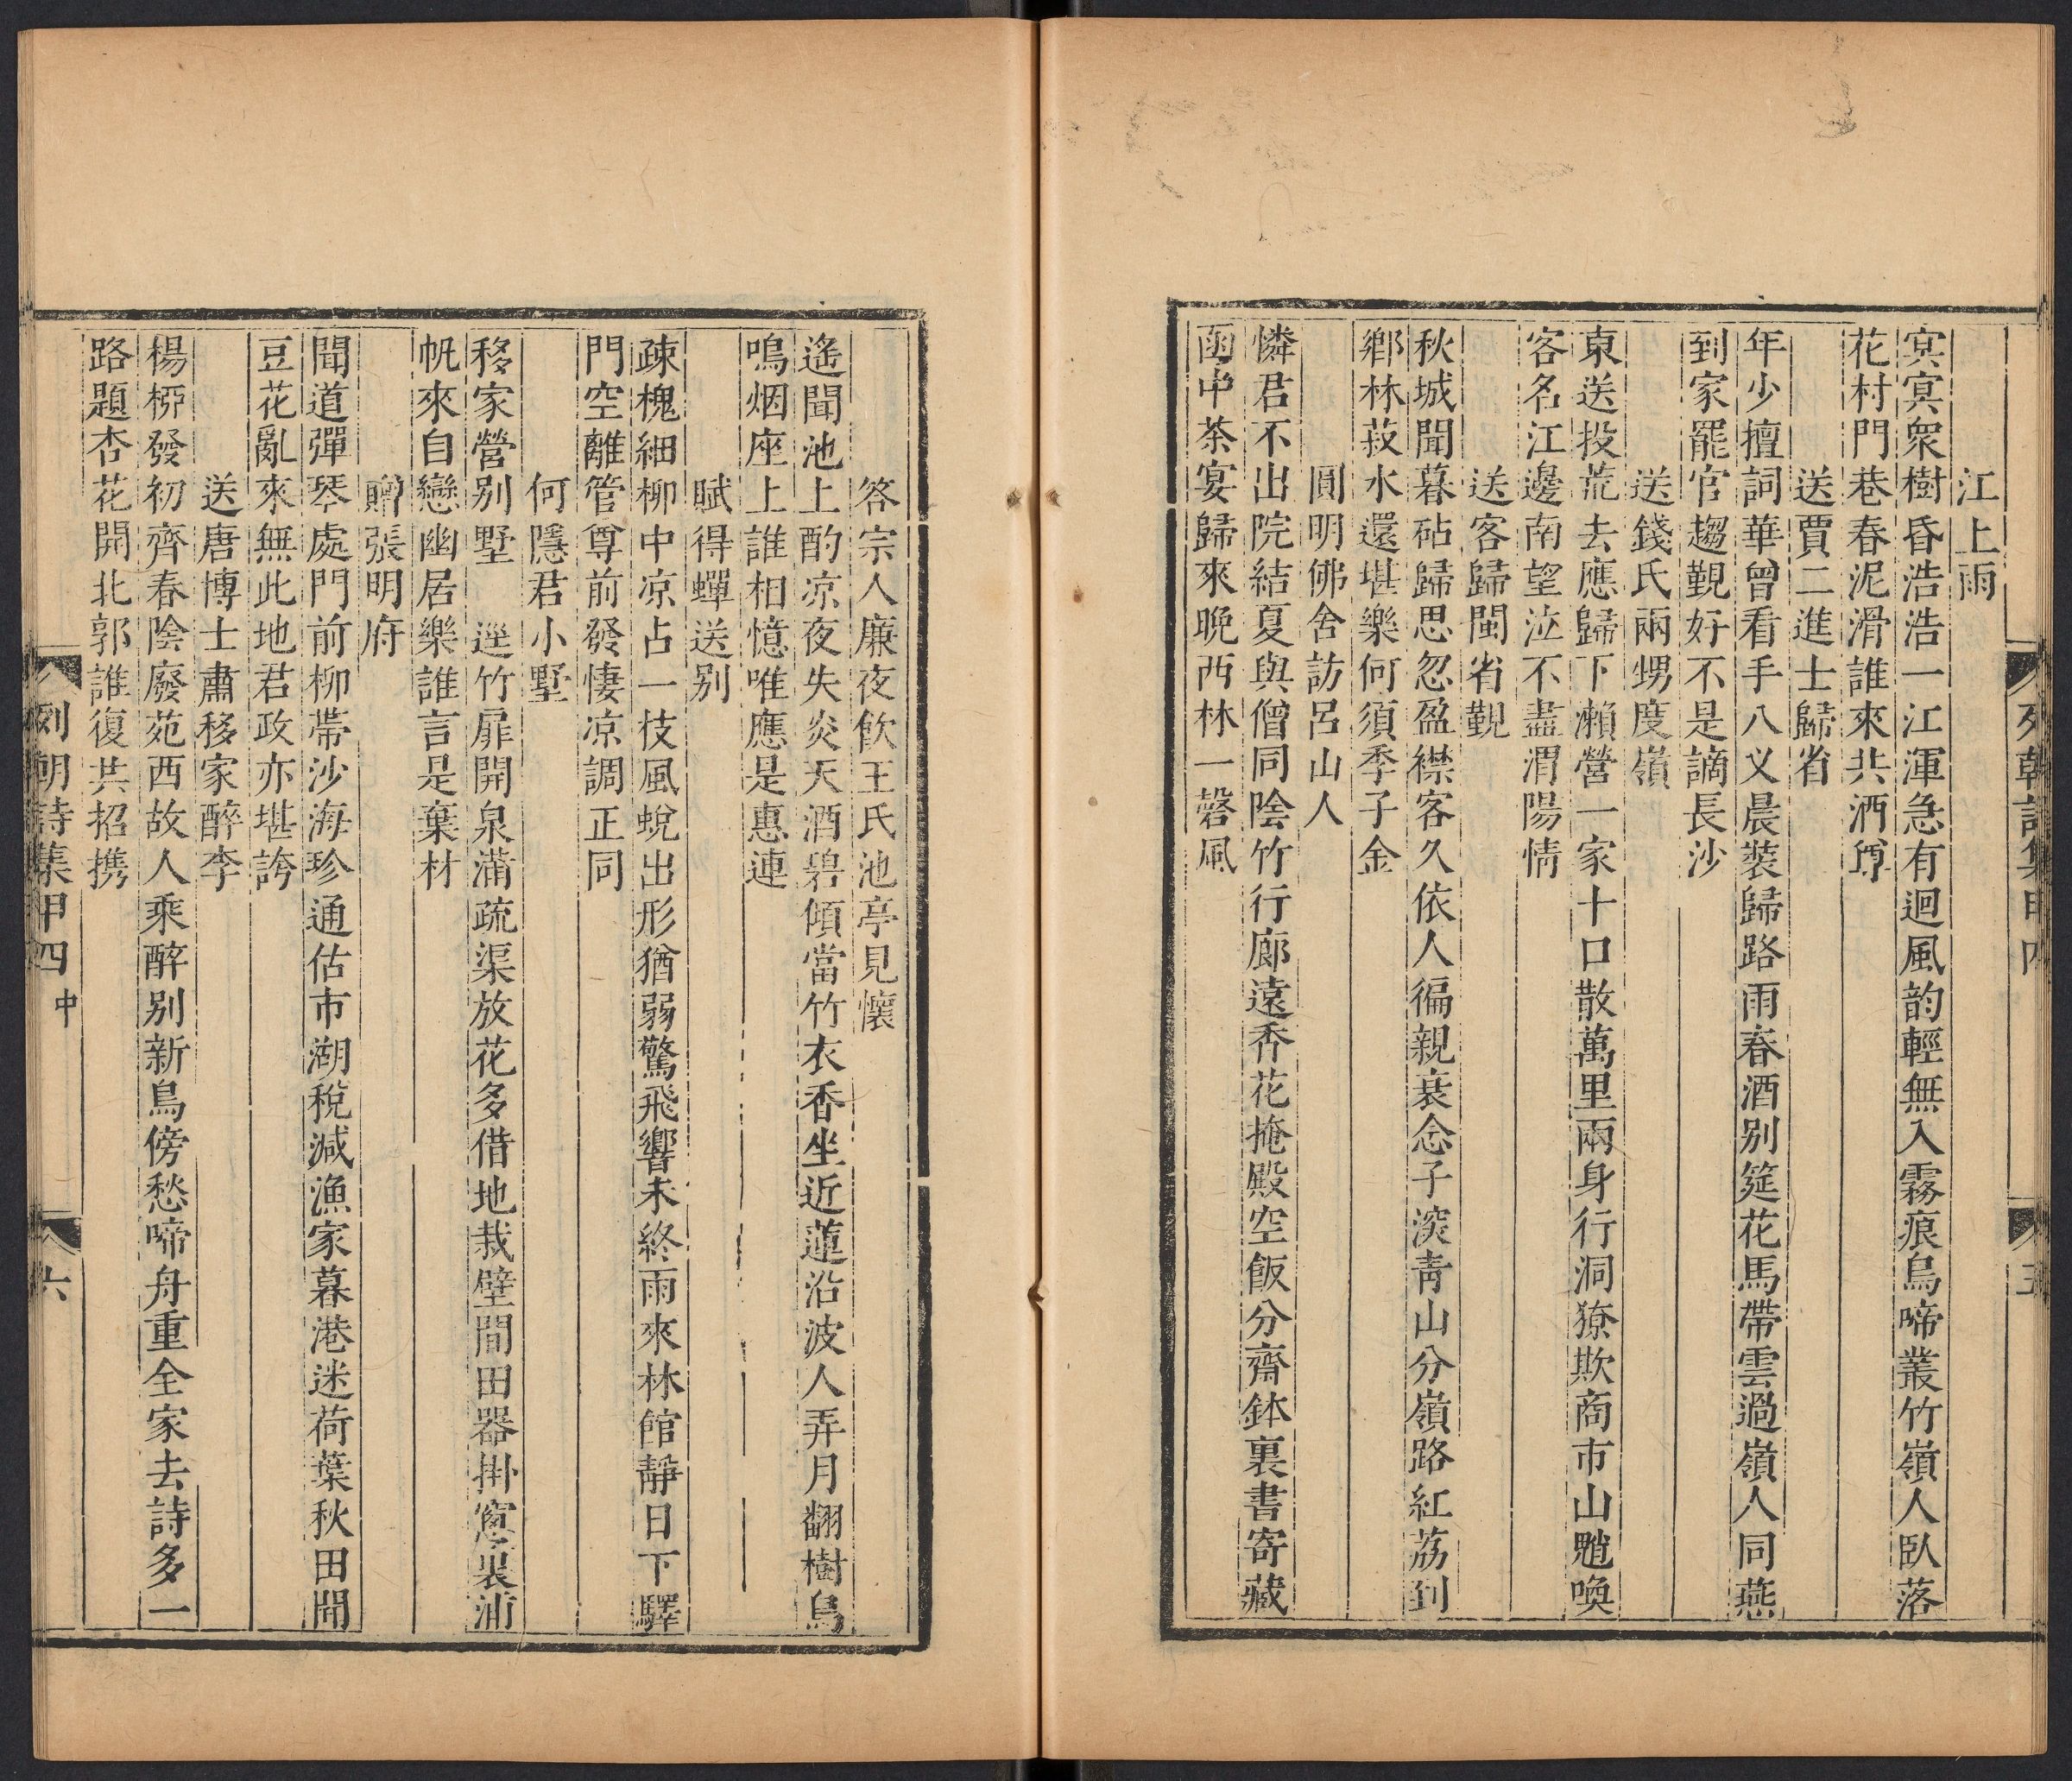 江上雨
冥冥衆樹昏浩浩一江渾急有迴風韵輕無入霧痕鳥啼叢竹嶺人臥落
花村門巷春泥滑誰來共酒尊
送賈二進士歸省
年少擅詞華曾看手八义晨裝歸路雨春酒别筵花馬帶雲過嶺人同燕
到家罷官趨覲好不是謫長沙
送錢氏兩甥度嶺
東送投荒去應歸下瀨營一家十口散萬里兩身行洞獠欺商市山魈喚
客名江邊南望泣不盡渭陽情
送客歸閩省覲
秋城聞暮砧歸思忽盈襟客久依人徧親衰念子深靑山分嶺路紅荔到
鄉林菽水還堪樂何須季子金
圓明佛舍訪呂山人
憐君不出院結夏與僧同陰竹行廊遠香花掩殿空飯分齋鉢裏書寄藏
函中茶宴歸來晚西林一磬風
列朝詩集甲四
五
答宗人廉夜飲王氏池亭見懷
遙聞池上酌凉夜失炎天酒碧傾當竹衣香坐近蓮沿波人弄月翻樹鳥
鳴烟座上誰相憶唯應是惠連
賦得蟬送别
疎槐細柳中凉占一枝風蛻出形猶弱驚飛響未終雨來林館靜日下驛
門空離管尊前發悽凉調正同
何隱君小墅
移家營别墅 逕竹扉開泉滿疏渠放花多借地栽壁間田器掛窻裏浦
帆來自戀幽居樂誰言是棄材
贈張明府
聞道彈琴處門前柳帶沙海珍通估市湖稅減漁家暮港迷荷葉秋田閙
豆花亂來無此地君政亦堪誇
送唐博士肅移家醉李
楊桺發初齊春陰廢苑西故人乘醉别新鳥傍愁啼舟重全家去詩多一
路題杏花開北郭誰復共招携
列朝詩集甲四中
六